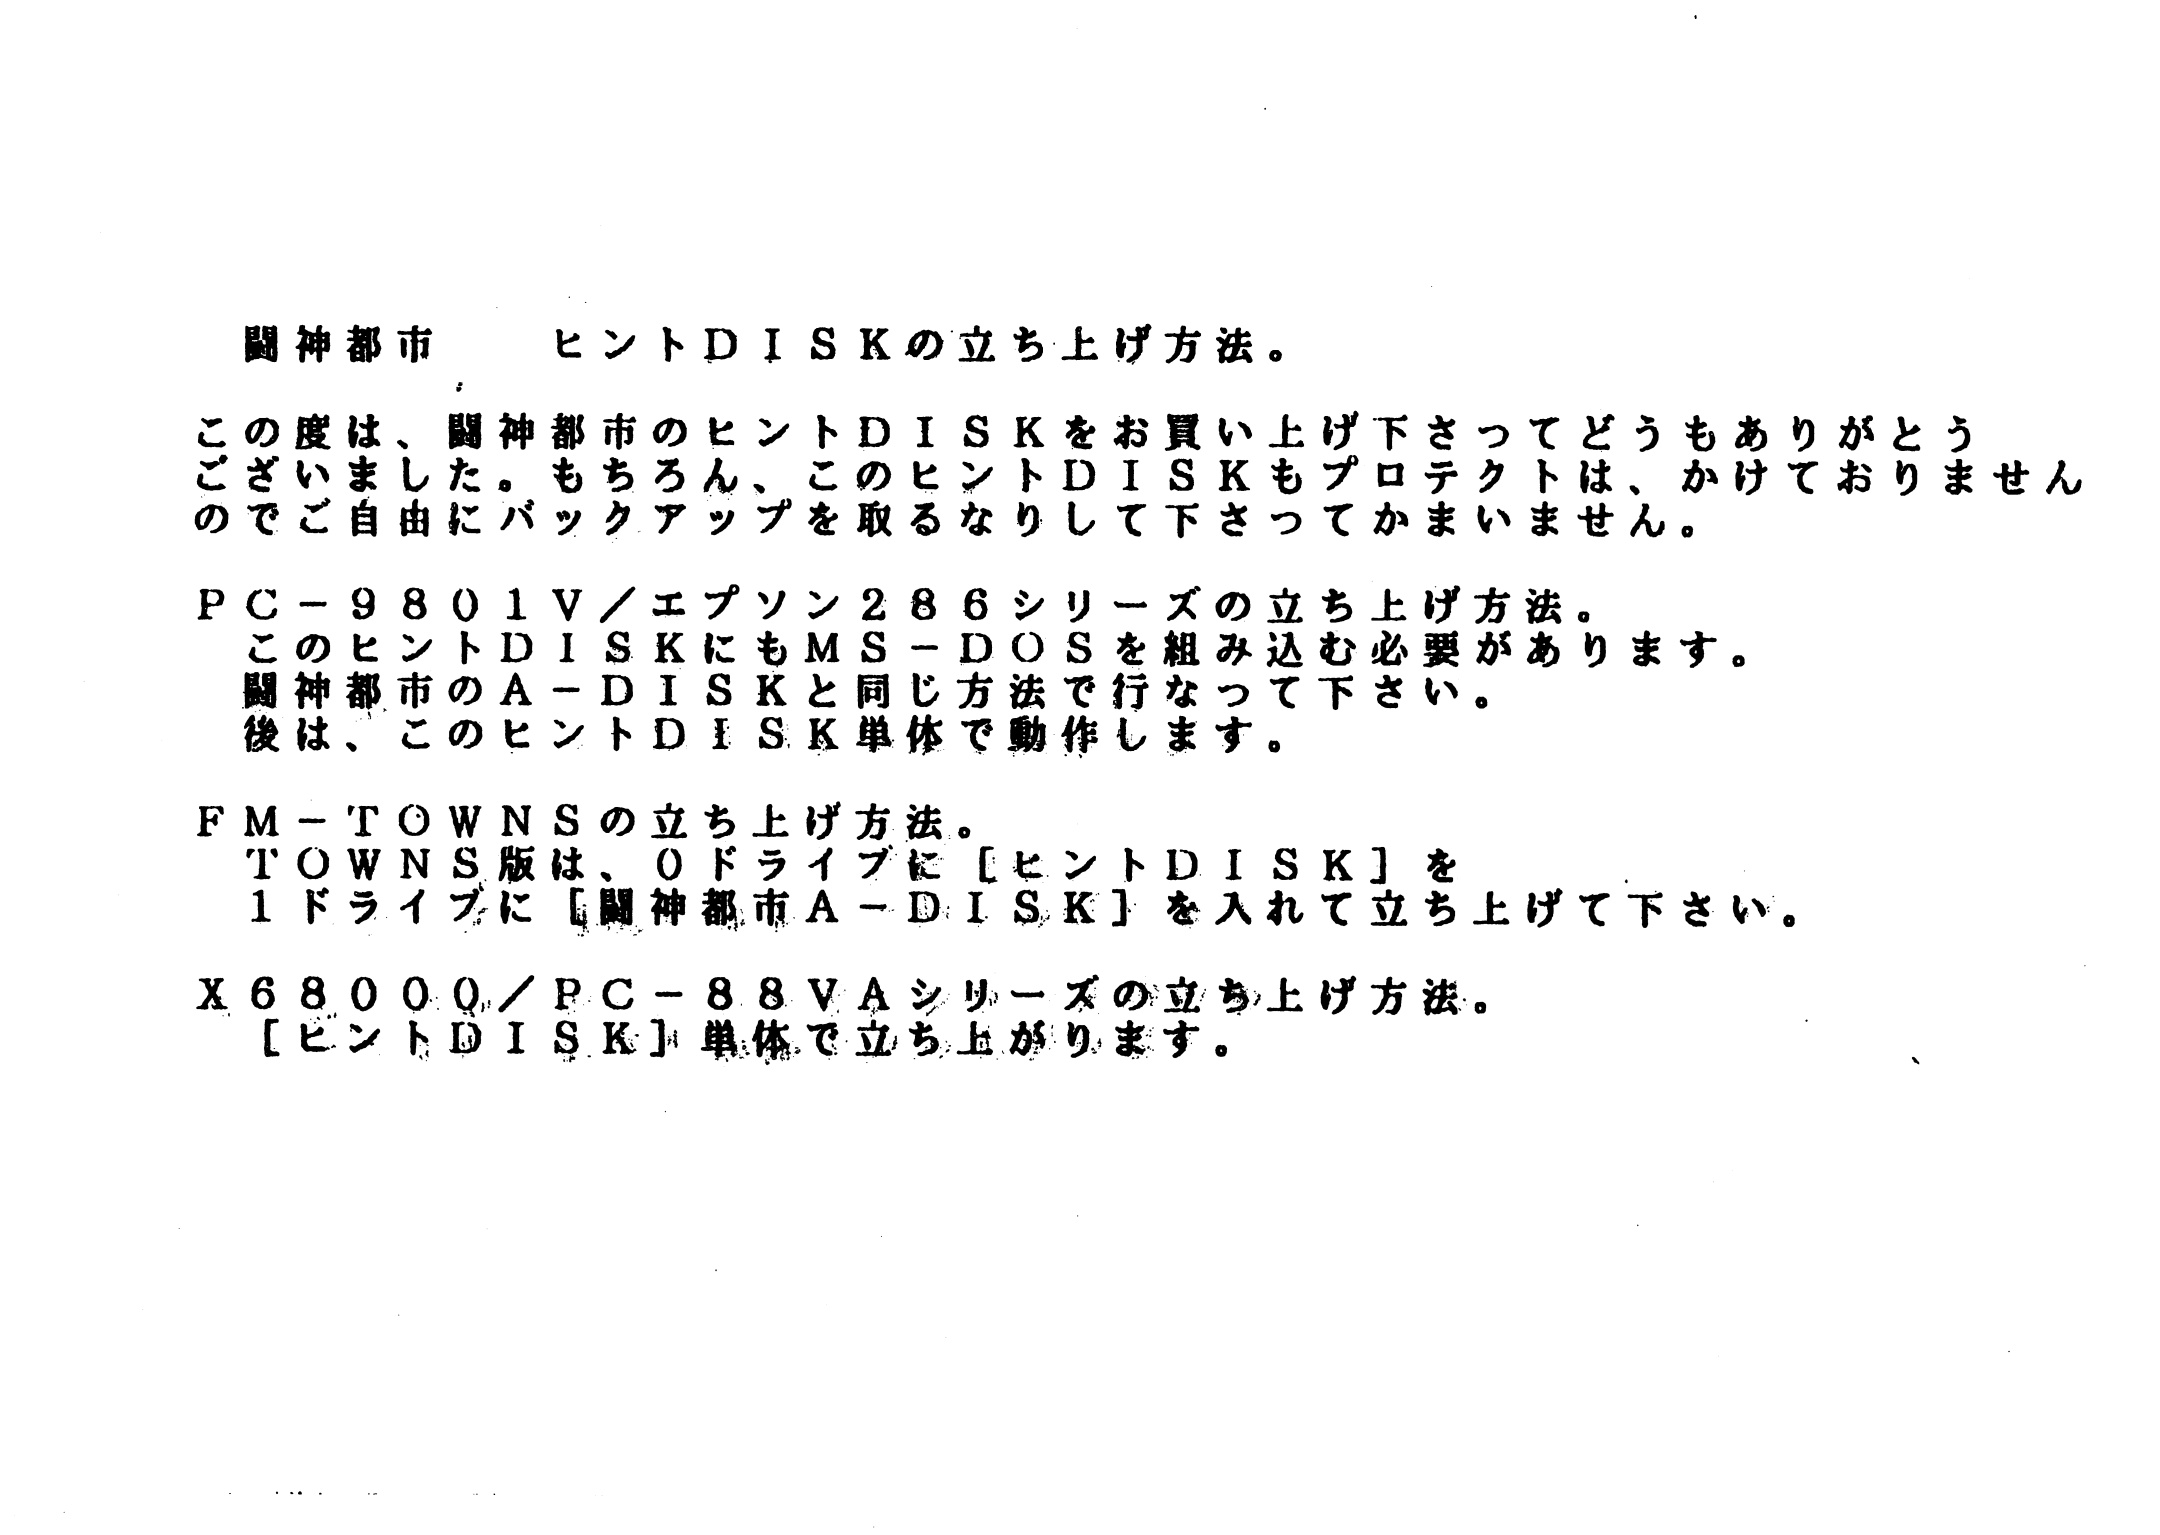 闘神都市　　ヒントＤＩＳＫの立ち上げ方法。
この度は、闘神都市のヒントＤＩＳＫをお買い上げ下さってどうもありがとう
ございました。もちろん、このヒントＤＩＳＫもプロテクトは、かけておりません
のでご自由にバックアップを取るなりして下さってかまいません。
ＰＣ－９８０１Ｖ／エプソン２８６シリーズの立ち上げ方法。
このヒントＤＩＳＫにもＭＳ－ＤＯＳを組み込む必要があります。
闘神都市のＡ－ＤＩＳＫと同じ方法で行なって下さい。
後は、このヒントＤＩＳＫ単体で動作します。
ＦＭ－ＴＯＷＮＳの立ち上げ方法。
ＴＯＷＮＳ版は、０ドライブに［ヒントＤＩＳＫ］を
１ドライブに［闘神都市Ａ－ＤＩＳＫ］を入れて立ち上げて下さい。
Ｘ６８０００／ＰＣ－８８ＶＡシリーズの立ち上げ方法。
［ヒントＤＩＳＫ］単体で立ち上がります。